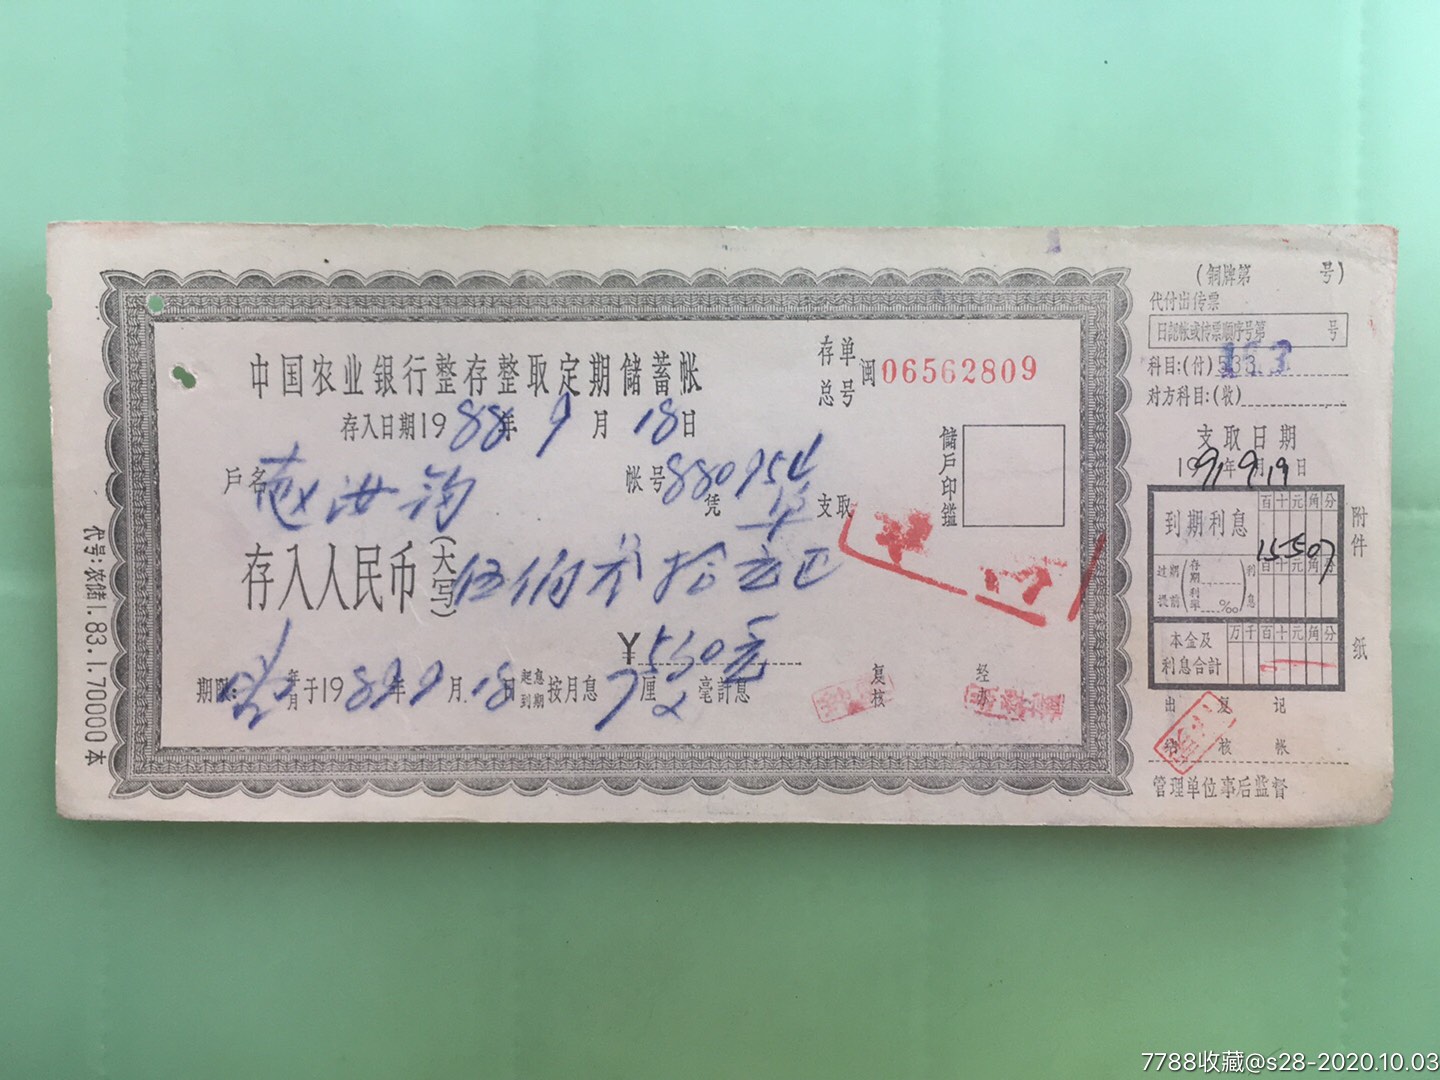 中国农业银行整存整取定期储蓄帐
存单总号 闽06562809
存入日期1988年9月18日
户名 赵汝
帐号880954
凭 支取
储户印鉴
存入人民币(大写)伍佰 拾元正
¥530元
期限: 年月 于1989年9月18日 起息到期 按月息7厘2毫計息
复核
经办
代号:农储1.83.1.70000本
(铜牌第 号)
代付出传票
日記帐或传票顺序号第 号
科目:(付)533
对方科目:(收)
支取日期
1991年9月19日
到期利息 百十元角分
15507
过期 提前 (存期 利率 ‰) 利息 百十元角分
本金及利息合計 万千百十元角分
附件 纸
出納 复核 记帐
管理单位事后监督
7788收藏@s28-2020.10.03